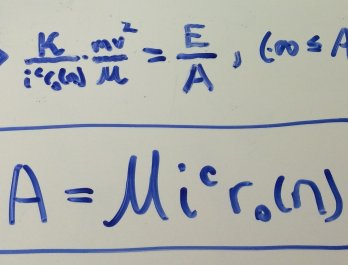 K/(i^c r_o(n)) · mv²/M = E/A , (∞ ≤ A
A = M i^c r_o(n)